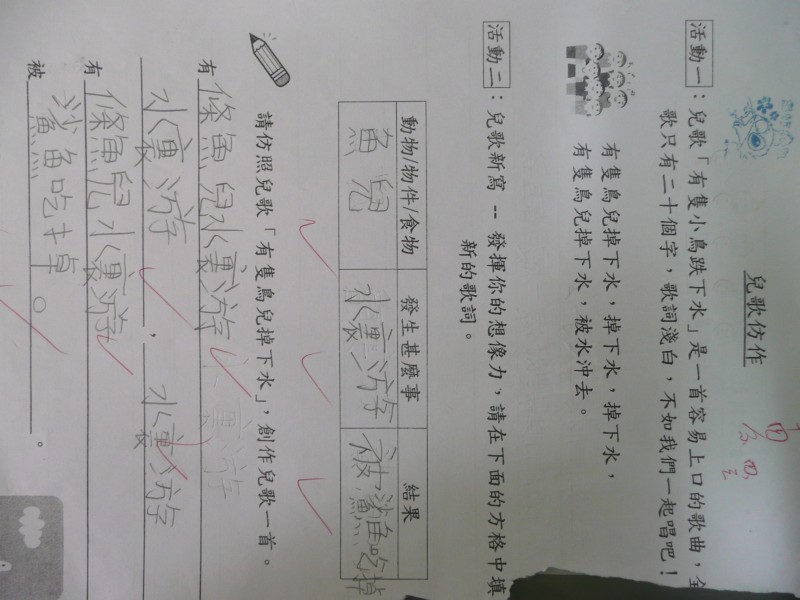 兒歌仿作
活動一：兒歌「有隻小鳥跌下水」是一首容易上口的歌曲，全
歌只有二十個字，歌詞淺白，不如我們一起唱吧！
有隻鳥兒掉下水，掉下水，掉下水，
有隻鳥兒掉下水，被水沖去。
活動二：兒歌新寫 -- 發揮你的想像力，請在下面的方格中填
新的歌詞。
動物/物件/食物 發生甚麼事 結果
魚兒 水裏游 被鯊魚吃掉
請仿照兒歌「有隻鳥兒掉下水」，創作兒歌一首。
有條魚兒水裏游
水裏游，水裏游
有條魚兒水裏游
被鯊魚吃掉。